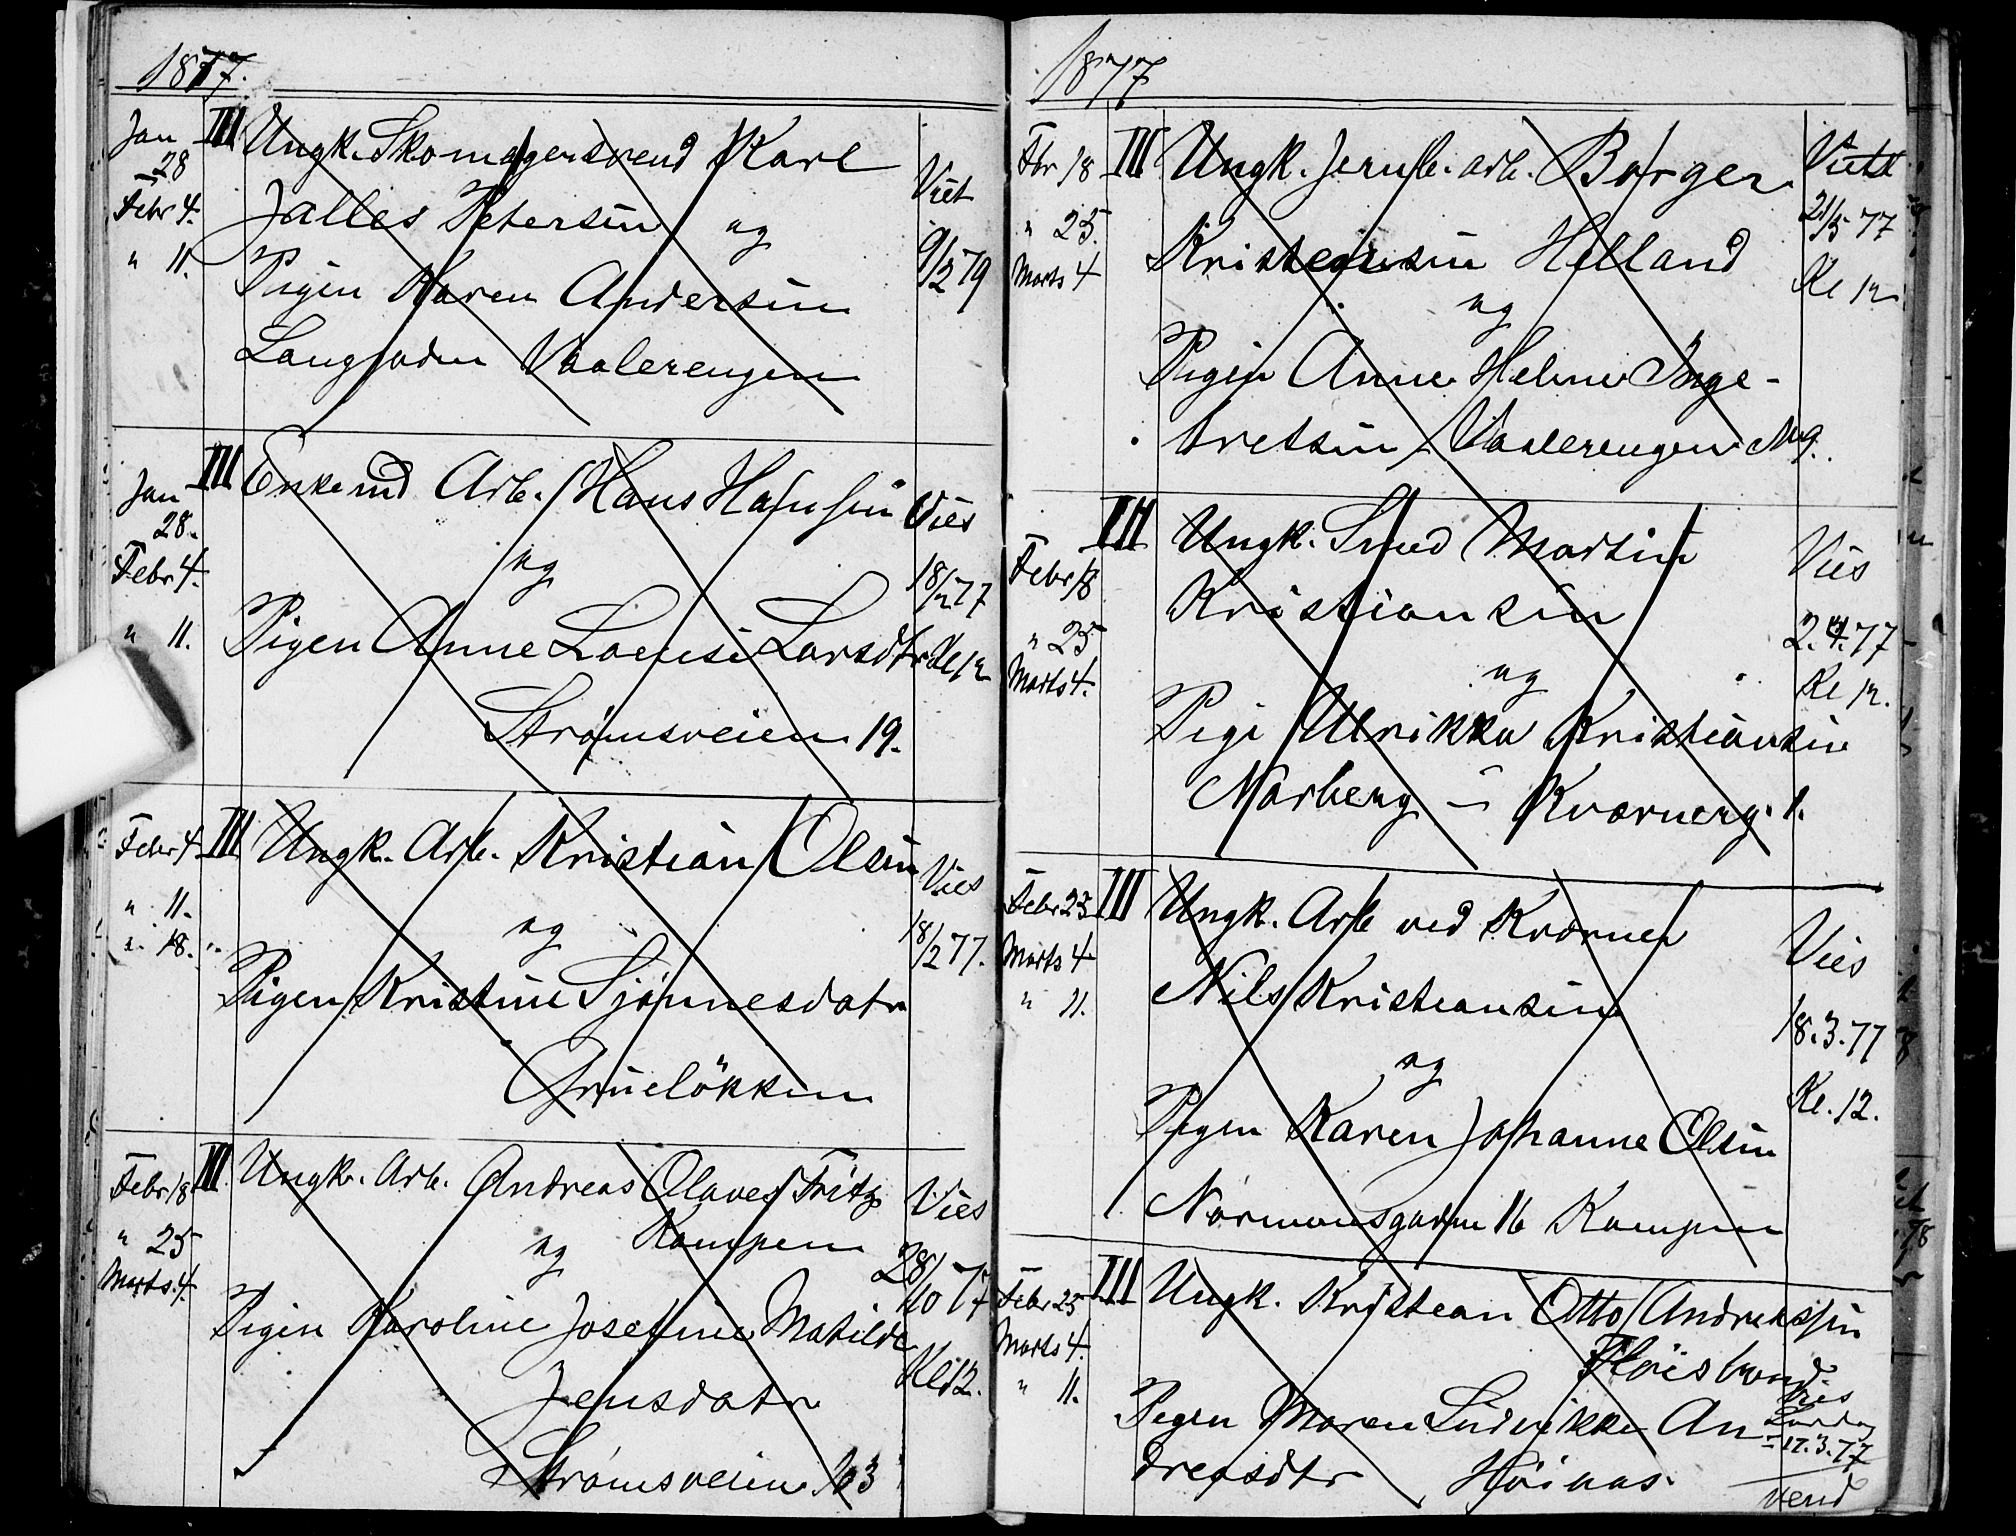 1877.
Jan III Ungk. Skomagersvend Karl
28
Febr 4. Jalles Petersen og Viet
" 11. Pigen Karen Andersen 9/2 79
Langgaden Vaalerengen
Jan III Enkemd Arb. Hans Hansen Vies
28.
Febr 4. og 18/2 77
" 11. Pigen Anne Lovise Larsdtr Kl 12
Strømsveien 19.
Febr 4 III Ungk. Arb. Kristian Olsen Vies
" 11. og 18/2 77.
" 18. Pigen Kristine Sjønnesdatr
Grüeløkken
Febr 18 III Ungk. Arb. Andreas Olaves Fritz Vies
" 25 og Kampen 28/10 77
Marts 4. Pigen Karoline Josefine Matilde
Jensdatr Kl 12.
Strømsveien 63
1877
Fbr 18 III Ungk. Jernb. arb. Borger Viet
" 25. 21/5 77
Marts 4 Kristensen Helland Kl 12
og
Pigen Anne Helene Inge-
bretsen Vaalerengen Ng.
III Ungk. Smed Martin Vies
Febr 18 Kristiansen
" 25 og 2.4.77
Marts 4. Kl 12.
Pige Ulrikka Kristiansen
Narberg - Kværnerg. 1.
Febr 25 III Ungk. Arb ved Kværner Vies
Marts 4
" 11. Nils Kristiansen 18.3.77
og Kl. 12.
Pigen Karen Johanne Olsen
Normansgaden 16 Kampen
Febr 25 III Ungk. Kristian Otto Andreassen
Marts 4. Fløisbond
" 11. Pigen Maren Ludvikke An Vies
Lørdag
17.3.77
dreasdtr Høiaas.
Vend